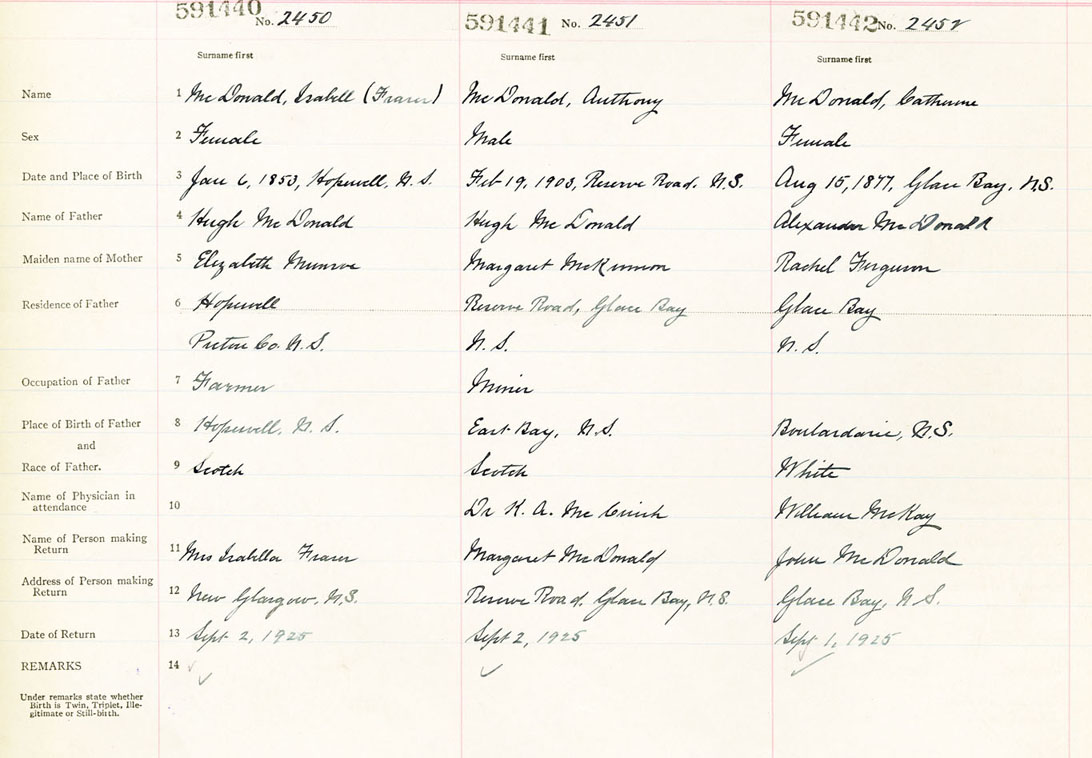 591440 No. 2450 591441 No. 2451 591442 No. 2452
Surname first Surname first Surname first
Name 1 McDonald, Isabell (Fraser) McDonald, Anthony McDonald, Catherine
Sex 2 Female Male Female
Date and Place of Birth 3 Jan 6, 1853, Hopewell, N.S. Feb 19, 1903, Reserve Road. N.S. Aug 15, 1877, Glace Bay, N.S.
Name of Father 4 Hugh McDonald Hugh McDonald Alexander McDonald
Maiden name of Mother 5 Elizabeth Munroe Margaret McKinnon Rachel Ferguson
Residence of Father 6 Hopewell Reserve Road, Glace Bay Glace Bay
Pictou Co. N.S. N.S. N.S.
Occupation of Father 7 Farmer Miner
Place of Birth of Father 8 Hopewell, N.S. East Bay, N.S. Boulardarie, N.S.
and
Race of Father. 9 Scotch Scotch White
Name of Physician in
attendance 10 Dr K. A. William McKay
Name of Person making
Return 11 Mrs Isabella Fraser Margaret McDonald John McDonald
Address of Person making
Return 12 New Glasgow. N.S. Reserve Road. Glace Bay, N.S. Glace Bay, N.S.
Date of Return 13 Sept 2, 1925 Sept 2, 1925 Sept 1, 1925
REMARKS 14
Under remarks state whether
Birth is Twin, Triplet, Ille-
gitimate or Still-birth.